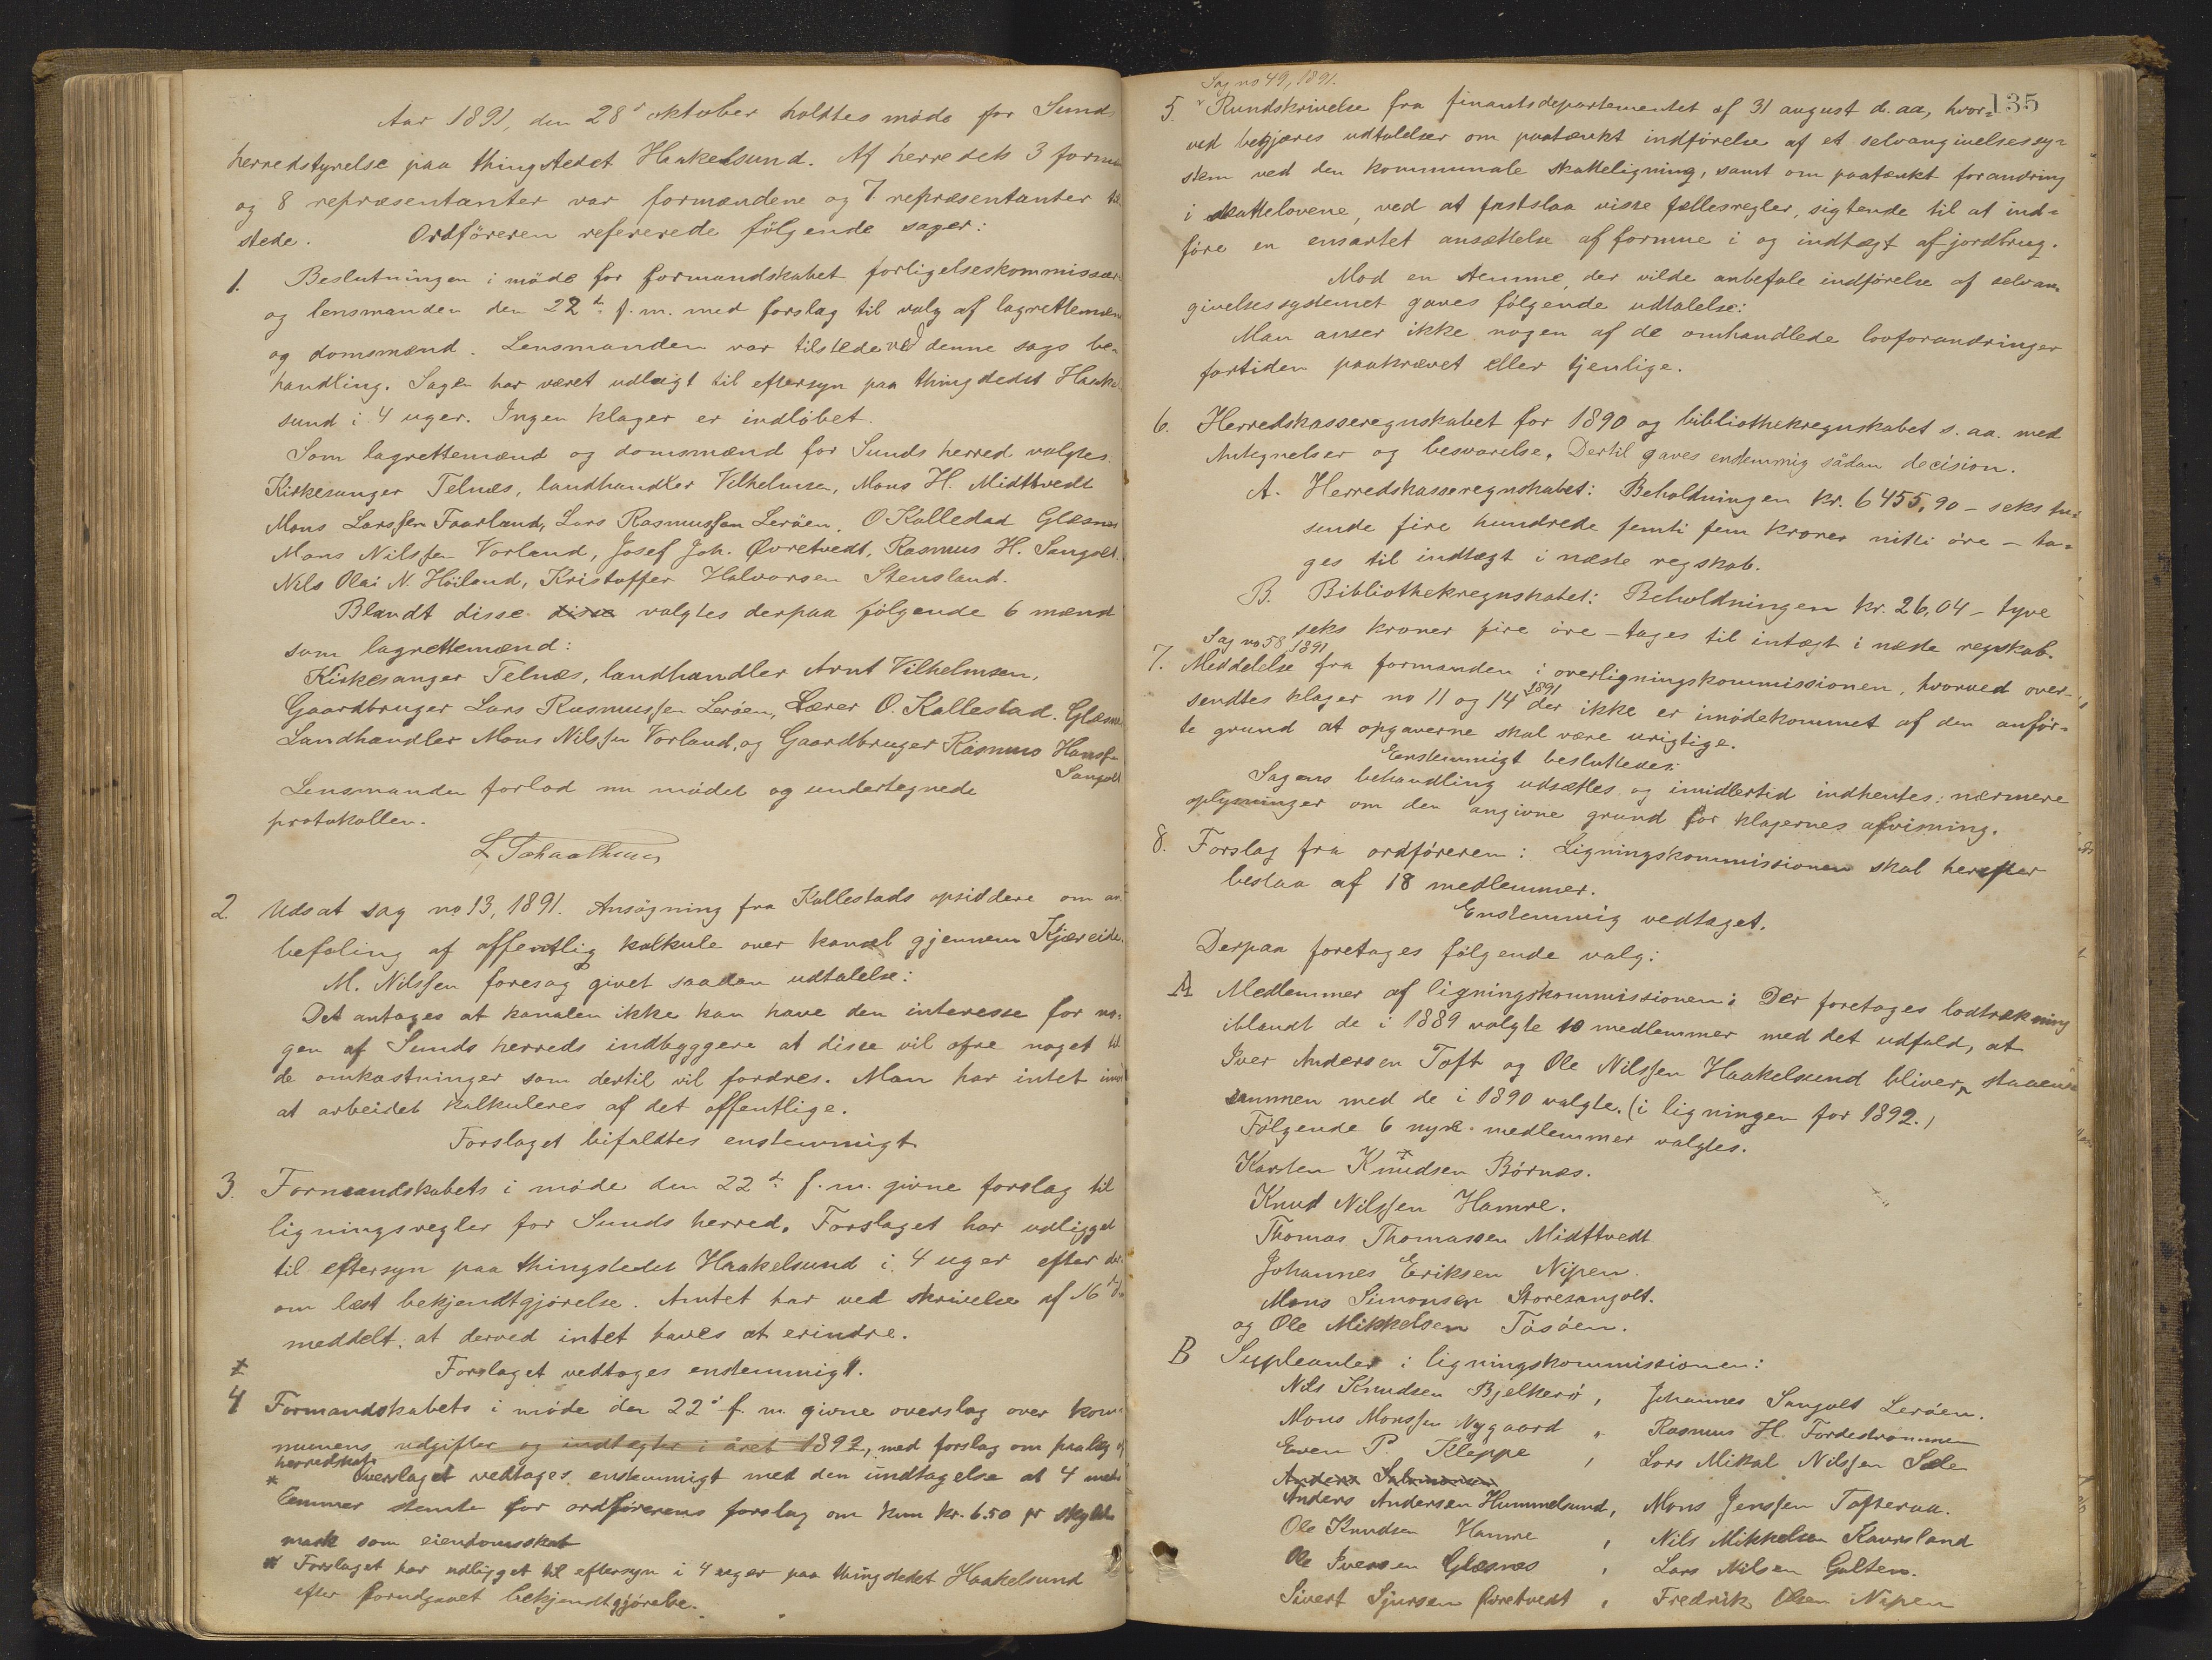 Aar 1891, den 28d oktober holdtes møde for Sunds
herredstyrelse paa thingstedet Haakelsund. Af herredets 3 formænd
og 8 repræsentanter var formændene og 7 repræsentanter til
stede. Ordföreren refererede fölgende sager:
1. Beslutningen i möde for formandskabet forligelseskommissær
og lensmanden den 22d. f.m. med forslag til valg af lagrettemænd
og domsmænd. Lensmanden var tilstede ved denne sags be-
handling. Sagen har været udlagt til eftersyn paa thingstedet Haakel
sund i 4 uger. Ingen klager er indlöbet.
Som lagrettemænd og domsmænd for Sunds herred valgtes.
Kirkesanger Telnæs, landhandler Vilhelmsen, Mons H. Midttvedt
Mons Larssen Faarland, Lars Rasmussen Leröen, O Kallestad Glæsnes
Mons Nilssen Vorland, Josef Joh. Øvretvedt, Rasmus H. Sangolt.
Nils Olai N. Höiland, Kristoffer Halvorsen Stensland.
Blandt disse disse valgtes derpaa fölgende 6 mænd
som lagrettemænd:
Kirkesanger Telnæs, landhandler Arnt Vilhelmsen,
Gaardbruger Lars Rasmussen Leröen, Lærer O. Kallestad. Glæsnes
Landhandler Mons Nilssen Vorland, og Gaardbruger Rasmus Hanss.
Sangolt
Lensmanden forlod nu mödet og undertegnede
protokollen.
2. Udsat sag no 13, 1891. Ansögning fra Kallestads opsiddere om an-
befaling af offentlig kalkule over kanal gjennem Kjæreide.
M. Nilssen foresog givet saadan udtalelse:
Det antages at kanalen ikke kan have den interesse for no-
gen af Sunds herreds indbyggere at disse vil ofre noget til
de omkostninger som dertil vil fordres. Man har intet imod
at arbeidet kalkuleres af det offentlige.
Forslaget bifaldtes enstemmigt
3. Formandskabets i möde den 22d. f.m. givne forslag til
ligningsregler for Sunds herred. Forslaget har udligget
til eftersyn paa thingstedet Haakelsund i 4 uger efter der-
om læst bekjendtgjörelse. Amtet har ved skrivelse af 16d ds
meddelt, at derved intet haves at erindre.
* Forslaget vedtages enstemmigt.
4 Formandskabets i möde den 22d f.m. givne overslag over kom-
munens udgifter og indtægter i året 1892, med forslag om paalæg af
herredskat
* Overslaget vedtages enstemmigt med den undtagelse at 4 med-
lemmer stemte for ordförerens forslag om kun kr. 6.50 pr skyld-
mark som eiendomsskat
* Forslaget har udligget til eftersyn i 4 uger paa thingstedet Haakelsund
efter forudgaaet bekjendtgjörelse.
135
Sag no 49, 1891.
5. Rundskrivelse fra finantsdepartementet af 31 august d. aa, hvor-
ved begjæres udtalelser om paatænkt indförelse af et selvangivelsessy-
stem ved den kommunale skatteligning, samt om paatænkt forandring
i skattelovene, ved at fastslaa visse fællesregler, sigtende til at ind-
före en ensartet ansættelse af formue i og indtægt af jordbrug.
Mod en stemme, der vilde anbefale indförelse af selvan-
givelsessystemet gaves fölgende udtalelse:
Man anser ikke nogen af de omhandlede lovforandringer
fortiden paakrævet eller tjenlige.
6. Herredskasseregnskabet for 1890 og bibliothekregnskabet s. aa. med
Antegnelser og besvarelse. Dertil gaves enstemmig sådan decision.
A. Herredskasseregnskabet: Beholdningen kr. 6455,90 - seks tu-
sinde fire hundrede femti fem kroner nitti öre - ta-
ges til indtægt i næste regskab.
B. Bibliothekregnskabet: Beholdningen kr. 26,04 - tyve
seks kroner fire öre - tages til intægt i næste regskab.
Sag no 58 1891
7. Meddelelse fra formanden i overligningskommissionen, hvorved over-
sendtes klager no 11 og 14 1891 der ikke er imödekommet af den anför-
te grund at opgaverne skal være urigtige.
Enstemmigt besluttedes:
Sagens behandling udsættes og imidlertid indhentes nærmere
oplysninger om den angivne grund for klagernes afvisning.
8. Forslag fra ordföreren: Ligningskommissionen skal herefter
bestaa af 18 medlemmer.
Enstemmig vedtaget.
Derpaa foretages fölgende valg:
A Medlemmer af ligningskommissionen: Der foretoges lodtrækning
iblandt de i 1889 valgte 10 medlemmer med det udfald, at
Iver Andersen Toft og Ole Nilssen Haakelsund bliver staaende
sammen med de i 1890 valgte. (i ligningen for 1892.)
Fölgende 6 nye medlemmer valgtes.
Karsten Knudsen Börnæs.
Knud Nilssen Hamre.
Thomas Thomassen Midttvedt
Johannes Eriksen Nipen.
Mons Simonsen Storesangolt.
og Ole Mikkelsen Tösöen.
B Supleanter i ligningskommissionen:
Nils Knudsen Bjelkerö, Johannes Sangolt Leröen.
Mons Monssen Nygaard, Rasmus H. Fordestrommen
Even P. Kleppe, Lars Mikal Nilssen Sæle
Anders Salomonsen
Anders Andersen Hummelsund, Mons Jenssen Tofteraa.
Ole Knudsen Hamre, Nils Mikkelsen Kaursland
Ole Iversen Glæsnæs, Lars Nilsen Golten.
Sivert Sjursen Øvretvedt, Fredrik Olsen Nipen